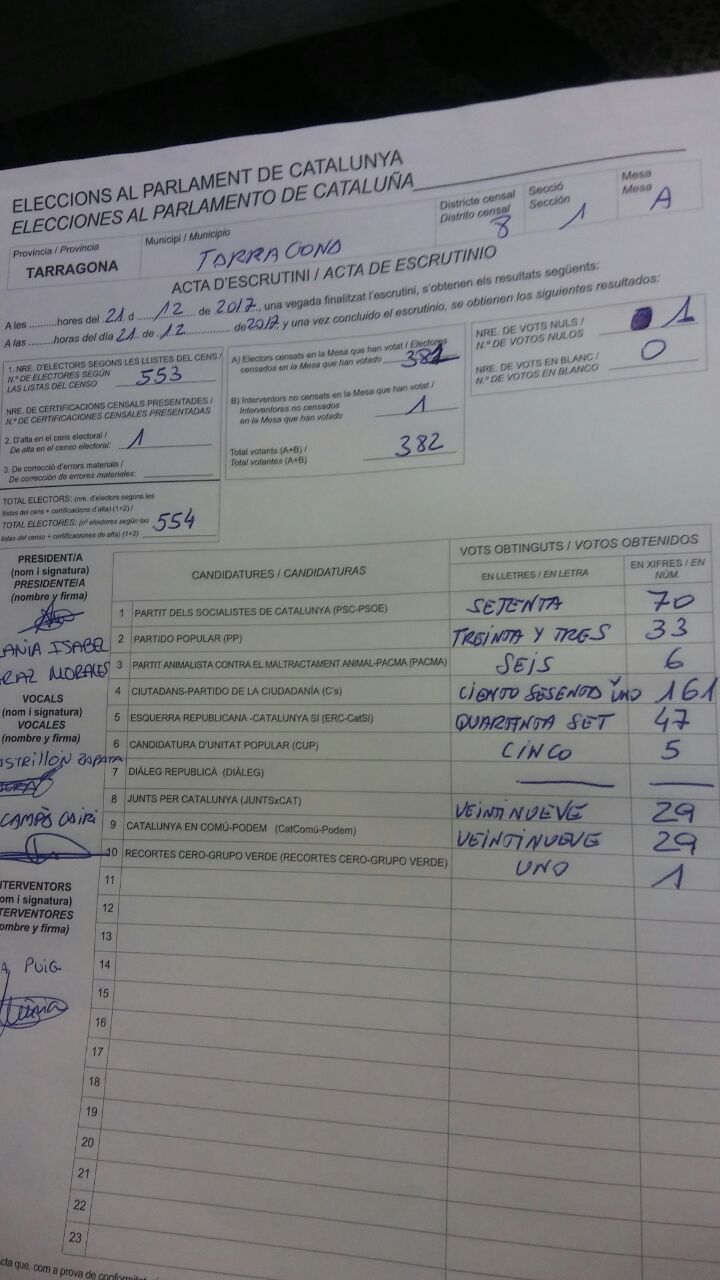 ELECCIONS AL PARLAMENT DE CATALUNYA
ELECCIONES AL PARLAMENTO DE CATALUÑA
Província / Provincia
TARRAGONA
Municipi / Municipio
TARRAGONA
Districte censal
Distrito censal
8
Secció
Sección
1
Mesa
Mesa
A
ACTA D'ESCRUTINI / ACTA DE ESCRUTINIO
A les ..........hores del 21 d ..... 12 ..... de 2017, una vegada finalitzat l'escrutini, s'obtenen els resultats següents:
A las ..........horas del día 21 de 12 ............... de 2017, y una vez concluido el escrutinio, se obtienen los siguientes resultados:
1. NRE. D'ELECTORS SEGONS LES LLISTES DEL CENS /
N.º DE ELECTORES SEGÚN
LAS LISTAS DEL CENSO
553
NRE. DE CERTIFICACIONS CENSALS PRESENTADES /
N.º DE CERTIFICACIONES CENSALES PRESENTADAS
2. D'alta en el cens electoral /
De alta en el censo electoral:
1
3. De correcció d'errors materials /
De corrección de errores materiales:
TOTAL ELECTORS: (nre. d'electors segons les
llistes del cens + certificacions d'alta) (1+2) /
TOTAL ELECTORES: (nº electores según las
listas del censo + certificaciones de alta) (1+2)
554
A) Electors censats en la Mesa que han votat / Electores
censados en la Mesa que han votado
382
B) Interventors no censats en la Mesa que han votat /
Interventores no censados
en la Mesa que han votado
1
Total votants (A+B) /
Total votantes (A+B)
382
NRE. DE VOTS NULS /
N.º DE VOTOS NULOS
1
NRE. DE VOTS EN BLANC /
N.º DE VOTOS EN BLANCO
0
PRESIDENT/A
(nom i signatura)
PRESIDENTE/A
(nombre y firma)
ANIA ISABEL
RAZ MORALES
VOCALS
(nom i signatura)
VOCALES
(nombre y firma)
STRILLÓN ZAPATA
CAMPOS
NTERVENTORS
om i signatura)
TERVENTORES
ombre y firma)
PUIG
CANDIDATURES / CANDIDATURAS
VOTS OBTINGUTS / VOTOS OBTENIDOS
EN LLETRES / EN LETRA
EN XIFRES / EN NÚM.
1 PARTIT DELS SOCIALISTES DE CATALUNYA (PSC-PSOE) SETENTA 70
2 PARTIDO POPULAR (PP) TREINTA Y TRES 33
3 PARTIT ANIMALISTA CONTRA EL MALTRACTAMENT ANIMAL-PACMA (PACMA) SEIS 6
4 CIUTADANS-PARTIDO DE LA CIUDADANÍA (C's) CIENTO SESENTA Y UNO 161
5 ESQUERRA REPUBLICANA -CATALUNYA SI (ERC-CatSI) QUARANTA SET 47
6 CANDIDATURA D'UNITAT POPULAR (CUP) CINCO 5
7 DIÀLEG REPUBLICÀ (DIÀLEG)
8 JUNTS PER CATALUNYA (JUNTSxCAT) VEINTINUEVE 29
9 CATALUNYA EN COMÚ-PODEM (CatComú-Podem) VEINTINUEVE 29
10 RECORTES CERO-GRUPO VERDE (RECORTES CERO-GRUPO VERDE) UNO 1
11
12
13
14
15
16
17
18
19
20
21
22
23
cta que, com a prova de conformitat